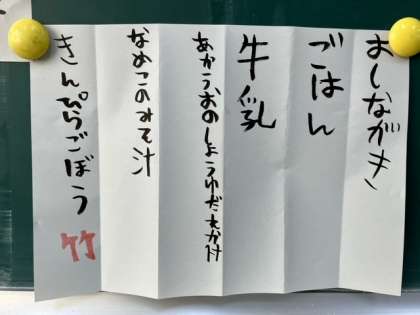 おしながき
ごはん
牛乳
あかうおのしょうゆだれかけ
なめこのみそ汁
きんぴらごぼう 竹